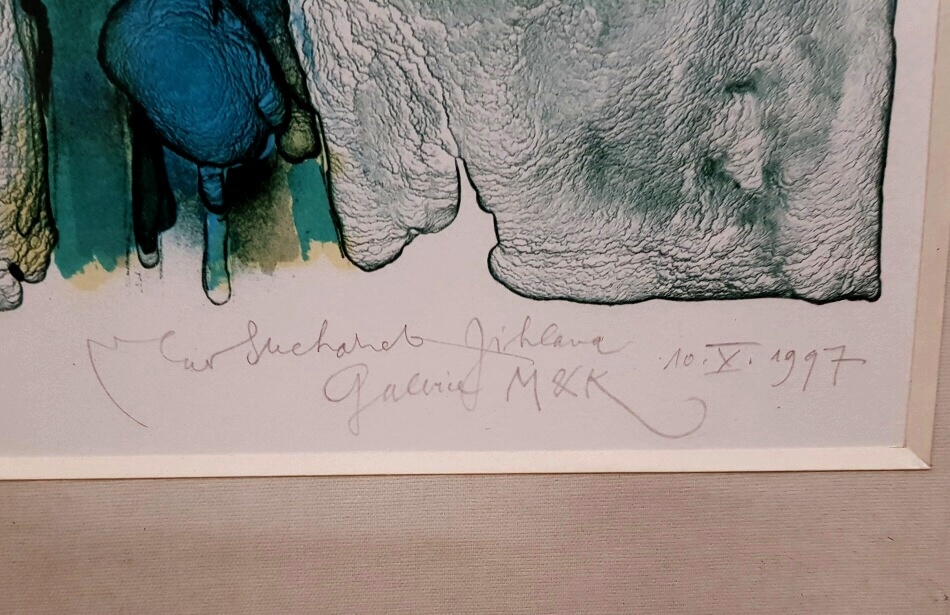 Suchánek Jihlava 10. X. 1997
Galerie M&K